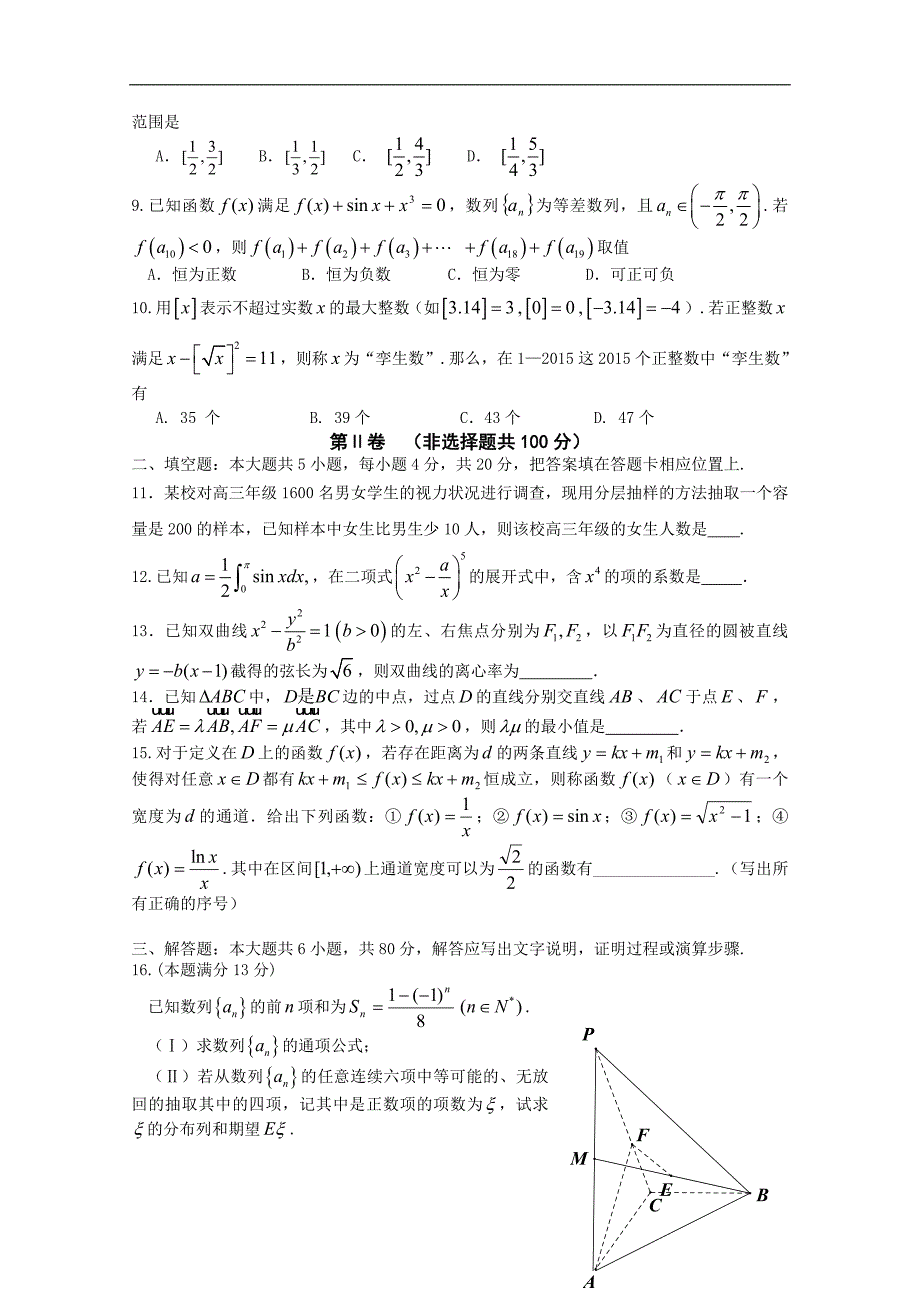 范围是
A．[1/2,3/2]　B．[1/3,1/2]　C．[1/2,4/3]　D．[1/4,5/3]
9.已知函数f(x)满足f(x)+sin x+x³=0，数列{aₙ}为等差数列，且aₙ∈(−π/2,π/2)．若
f(a₁₀)<0，则f(a₁)+f(a₂)+f(a₃)+⋯ +f(a₁₈)+f(a₁₉)取值
A．恒为正数　B．恒为负数　C．恒为零　D．可正可负
10.用[x]表示不超过实数x的最大整数(如[3.14]=3,[0]=0,[−3.14]=−4)．若正整数x
满足x−[√x]²=11，则称x为“孪生数”．那么，在1—2015这2015个正整数中“孪生数”
有
A. 35 个　B. 39个　C．43个　D. 47个
第Ⅱ卷　（非选择题共100分）
二、填空题：本大题共5小题，每小题4分，共20分，把答案填在答题卡相应位置上．
11．某校对高三年级1600名男女学生的视力状况进行调查，现用分层抽样的方法抽取一个容
量是200的样本，已知样本中女生比男生少10人，则该校高三年级的女生人数是____．
12.已知a=1/2∫₀^π sin xdx,，在二项式(x²−a/x)⁵的展开式中，含x⁴的项的系数是_____．
13．已知双曲线x²−y²/b²=1(b>0)的左、右焦点分别为F₁,F₂，以F₁F₂为直径的圆被直线
y=−b(x−1)截得的弦长为√6，则双曲线的离心率为_________．
14．已知ΔABC中，D是BC边的中点，过点D的直线分别交直线AB、AC于点E、F，
若AE=λAB,AF=μAC，其中λ>0,μ>0，则λμ的最小值是_________．
15.对于定义在D上的函数f(x)，若存在距离为d的两条直线y=kx+m₁和y=kx+m₂，
使得对任意x∈D都有kx+m₁≤f(x)≤kx+m₂恒成立，则称函数f(x)（x∈D）有一个
宽度为d的通道．给出下列函数：①f(x)=1/x；②f(x)=sin x；③f(x)=√(x²−1)；④
f(x)=ln x/x．其中在区间[1,+∞)上通道宽度可以为√2/2的函数有_______________．（写出所
有正确的序号）
三、解答题：本大题共6小题，共80分，解答应写出文字说明，证明过程或演算步骤．
16.(本题满分13分)
已知数列{aₙ}的前n项和为Sₙ=(1−(−1)ⁿ)/8 (n∈N*)．
（Ⅰ）求数列{aₙ}的通项公式；
（Ⅱ）若从数列{aₙ}的任意连续六项中等可能的、无放
回的抽取其中的四项，记其中是正数项的项数为ξ，试求
ξ的分布列和期望Eξ．
P
F
M
E
C
B
A